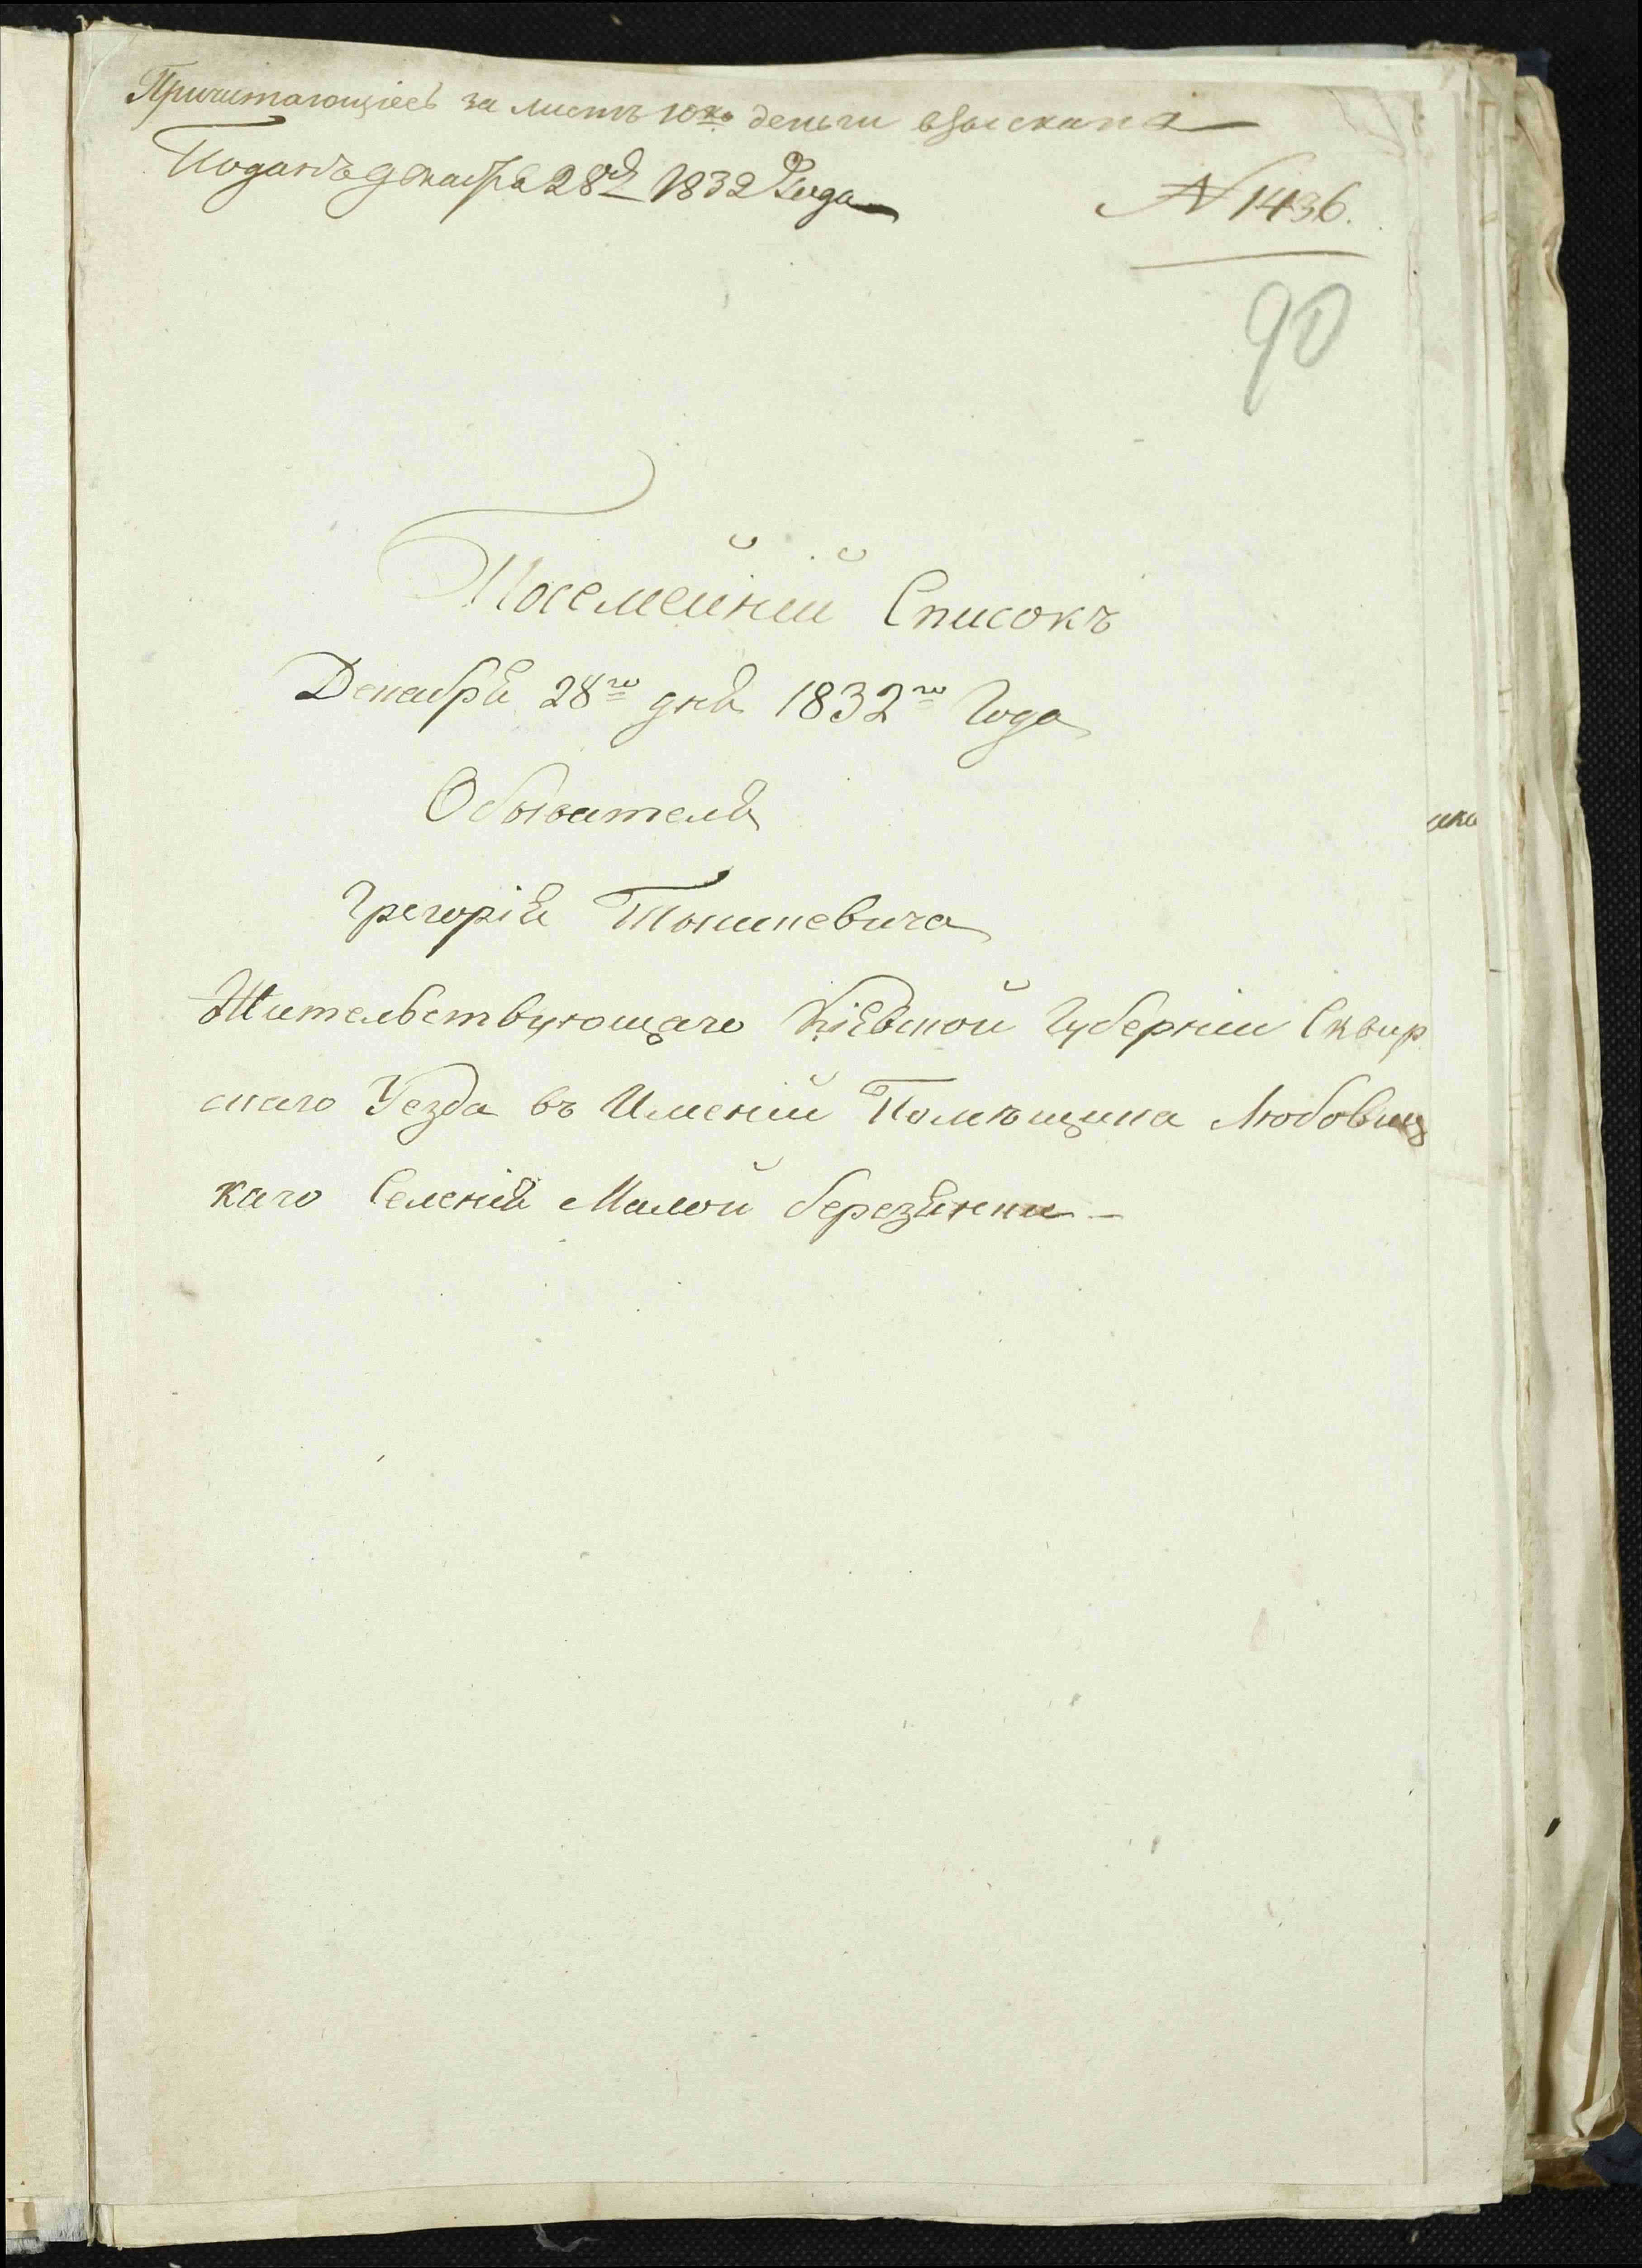 Причитающіесь за листъ 10 ко деньги взыскана
Поданъ декабря 28го 1832 Года
N 1436.
90
Посемейній Списокъ
Декабря 28го дня 1832го Года
Обывателя
Григорія Тонкевича
Жительствующаго Кіевской Губерніи Сквир
скаго Уезда въ Именіи Помѣщика Любовиц
каго Селенія Малой березянки